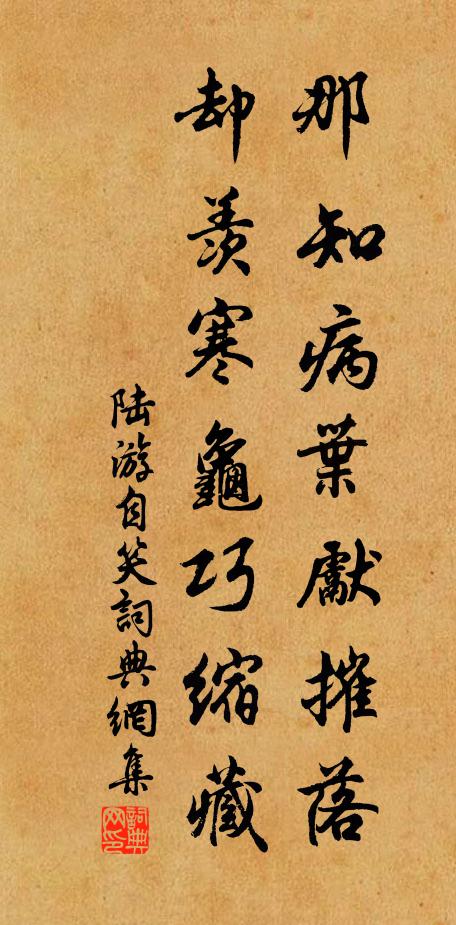 那知病葉獻摧落
却羨寒龜巧縮藏
陸游自笑詞典網集
詞典网印